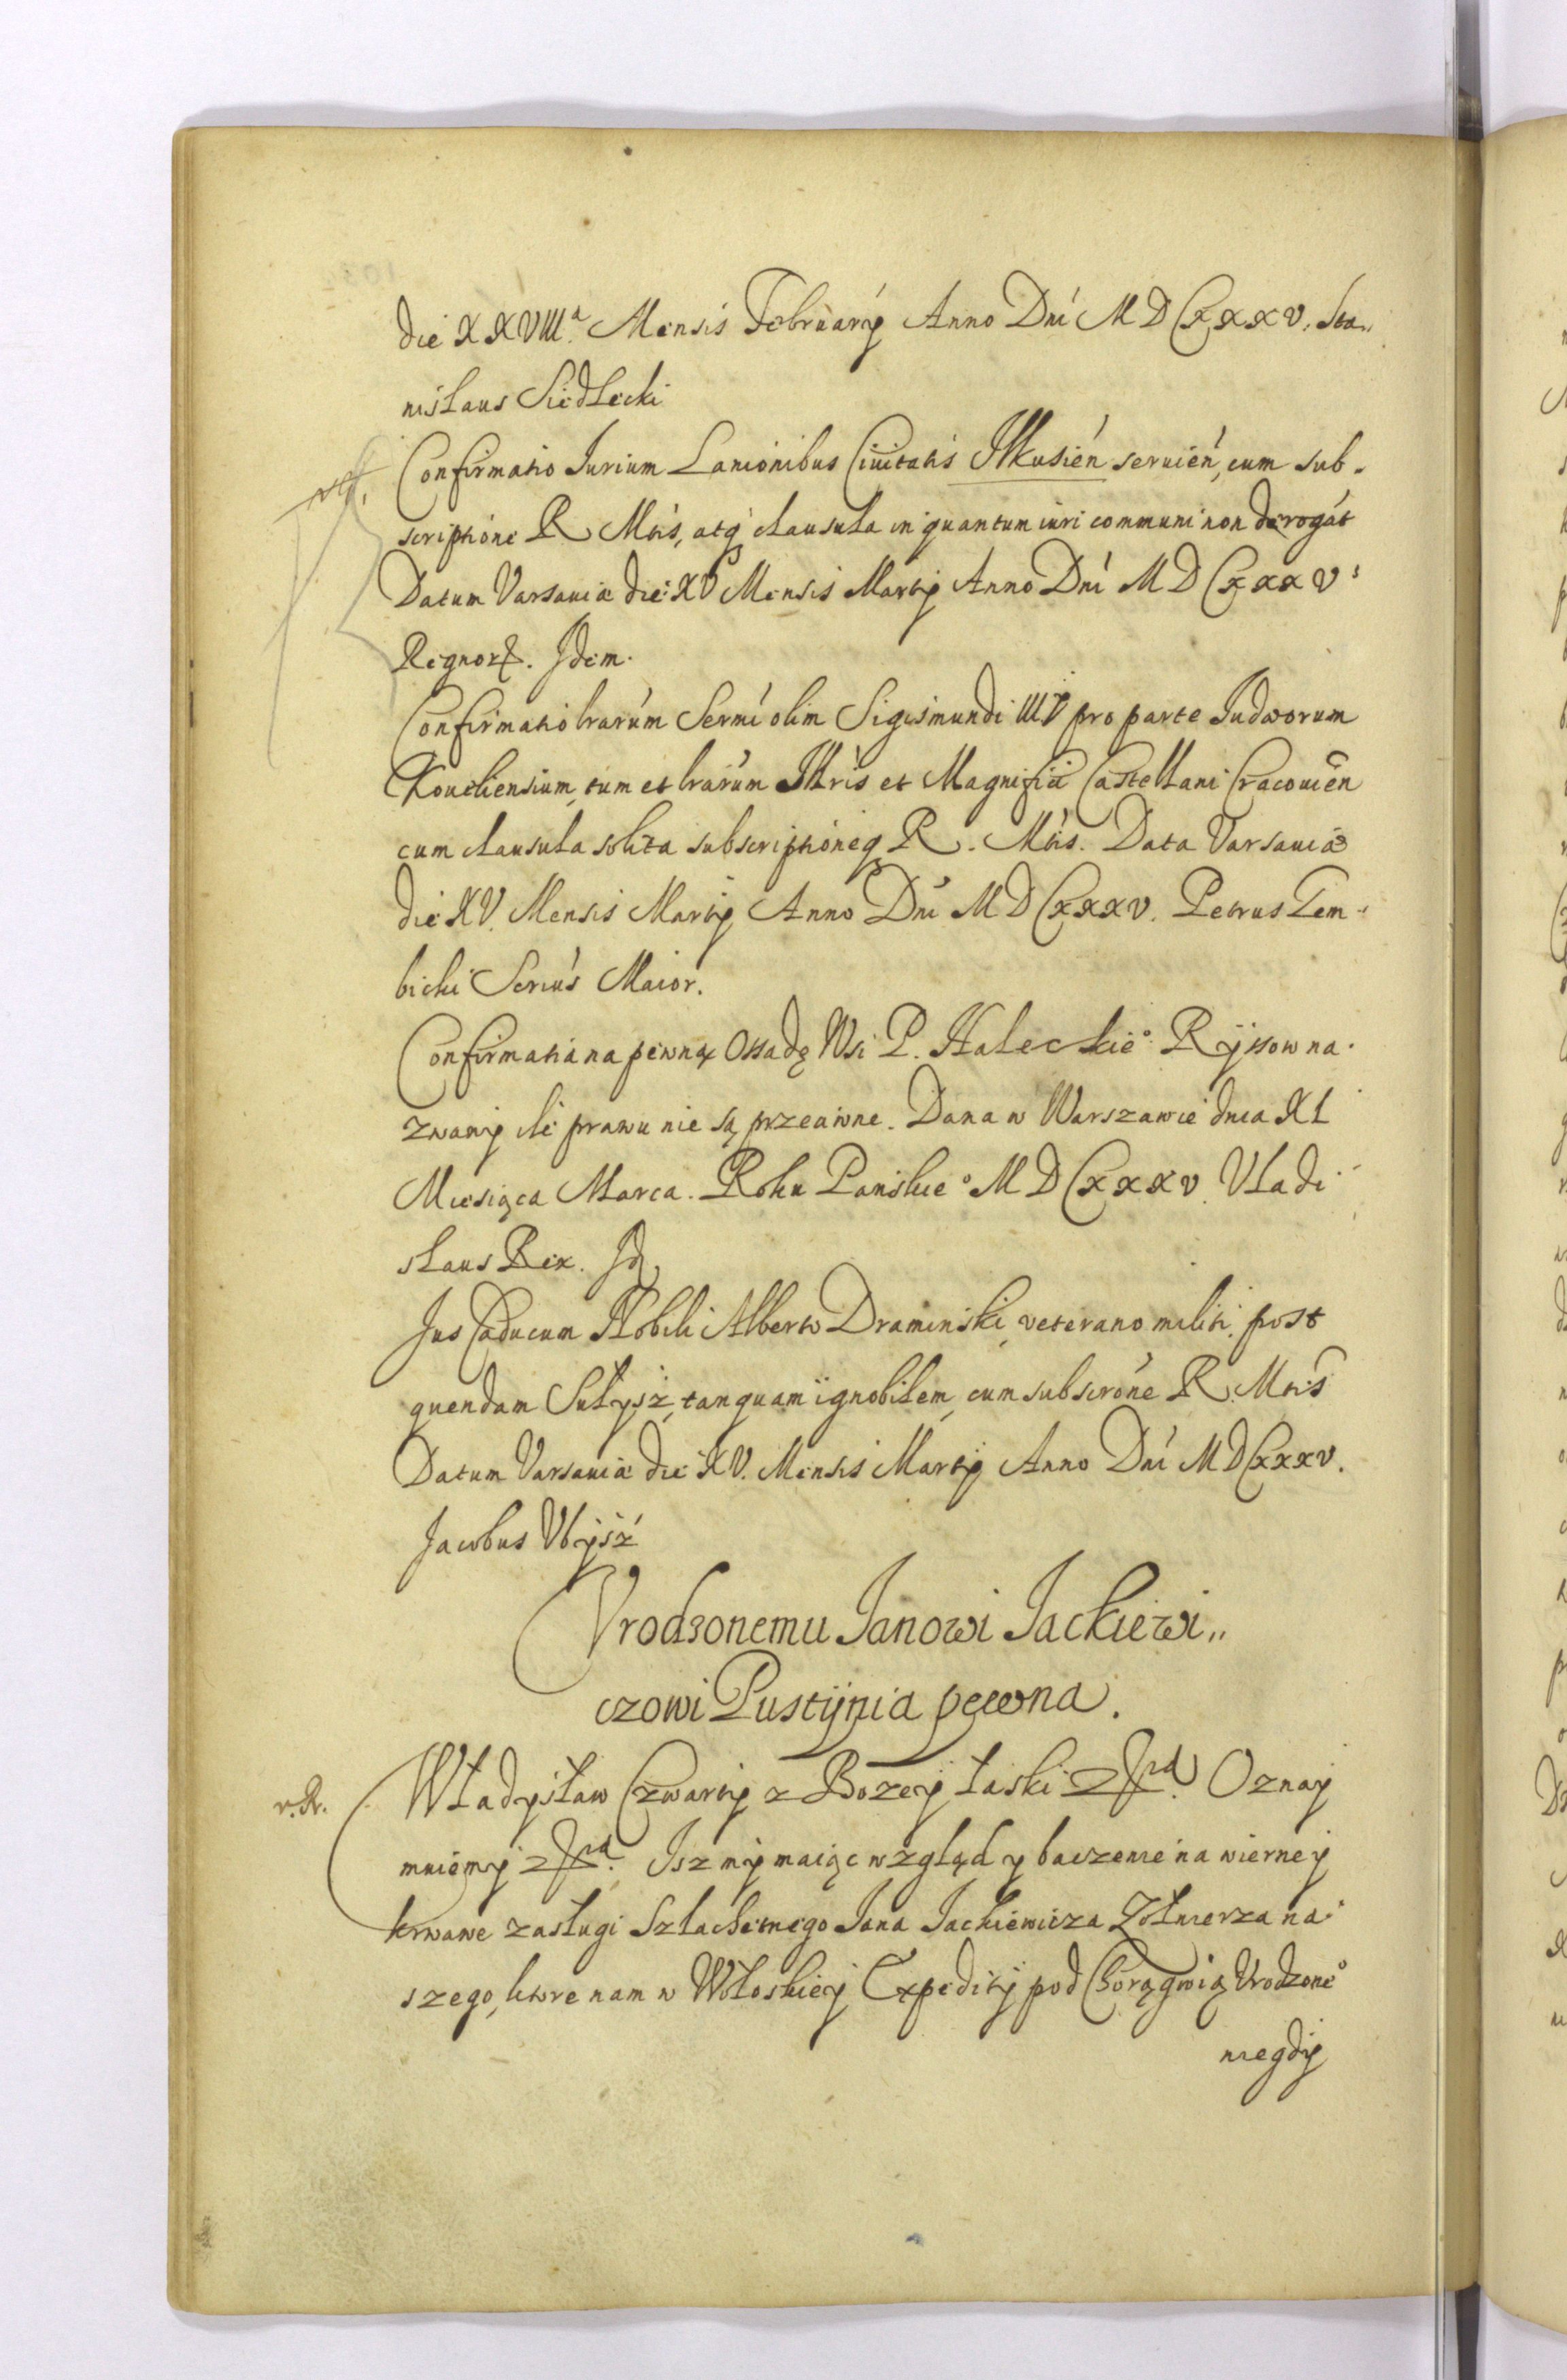 die XXVIIIª Mensis Februarij Anno Dni MDCXXXV. Sta„
nislaus Siedlecki
Confirmatio Iurium Lanionibus Ciuitatis Ilkusien seruien, cum sub-
scriptione R Mtis, atq clausula in quantum iuri communi non derogat
Datum Varsauiæ die XV Mensis Martij Anno Dni MDCXXXV
Regnor. Idem.
Confirmatio lrarum Sermi olim Sigismundi III pro parte Iudæorum
Koueliensium, tum et lrarum Illris et Magnifici Castellani Cracouien
cum clausula solita subscriptioneq R. Mtis. Data Varsauiæ
die XV. Mensis Martij Anno Dni MDCXXXV. Petrus Gem-
bicki Secrius Maior.
Confirmatia na pewną Ossadę Wsi P. Haleckieº Ryssow na-
zwany ile prawu nie są przeciwne. Dana w Warszawie dnia XI
Miesiąca Marca. Roku Panskieº MDCXXXV. Vladi
slaus Rex. Id
Jus Caducum Nobili Alberto Draminski, veterano militi, post
quendam Sułysz, tanquam ignobilem, cum subscrone R. Mtis
Datum Varsauiæ die XV. Mensis Martij Anno Dni MDCXXXV.
Jacobus Vbysz
Vrodzonemu Janowi Jackiewi„
czowi Pustynia pewna.
r. R. Władysław Czwarty z Bozey łaski &rd. Oznay
mniemy &rd. Isz my maiąc wzgląd y baczenie na wierne y
krwawe zasługi Szlachetnego Jana Jackiewicza Zołnierza na-
szego, ktore nam w Wołoskiey Expeditij pod Chorągwią Vrodzoneº
niegdy